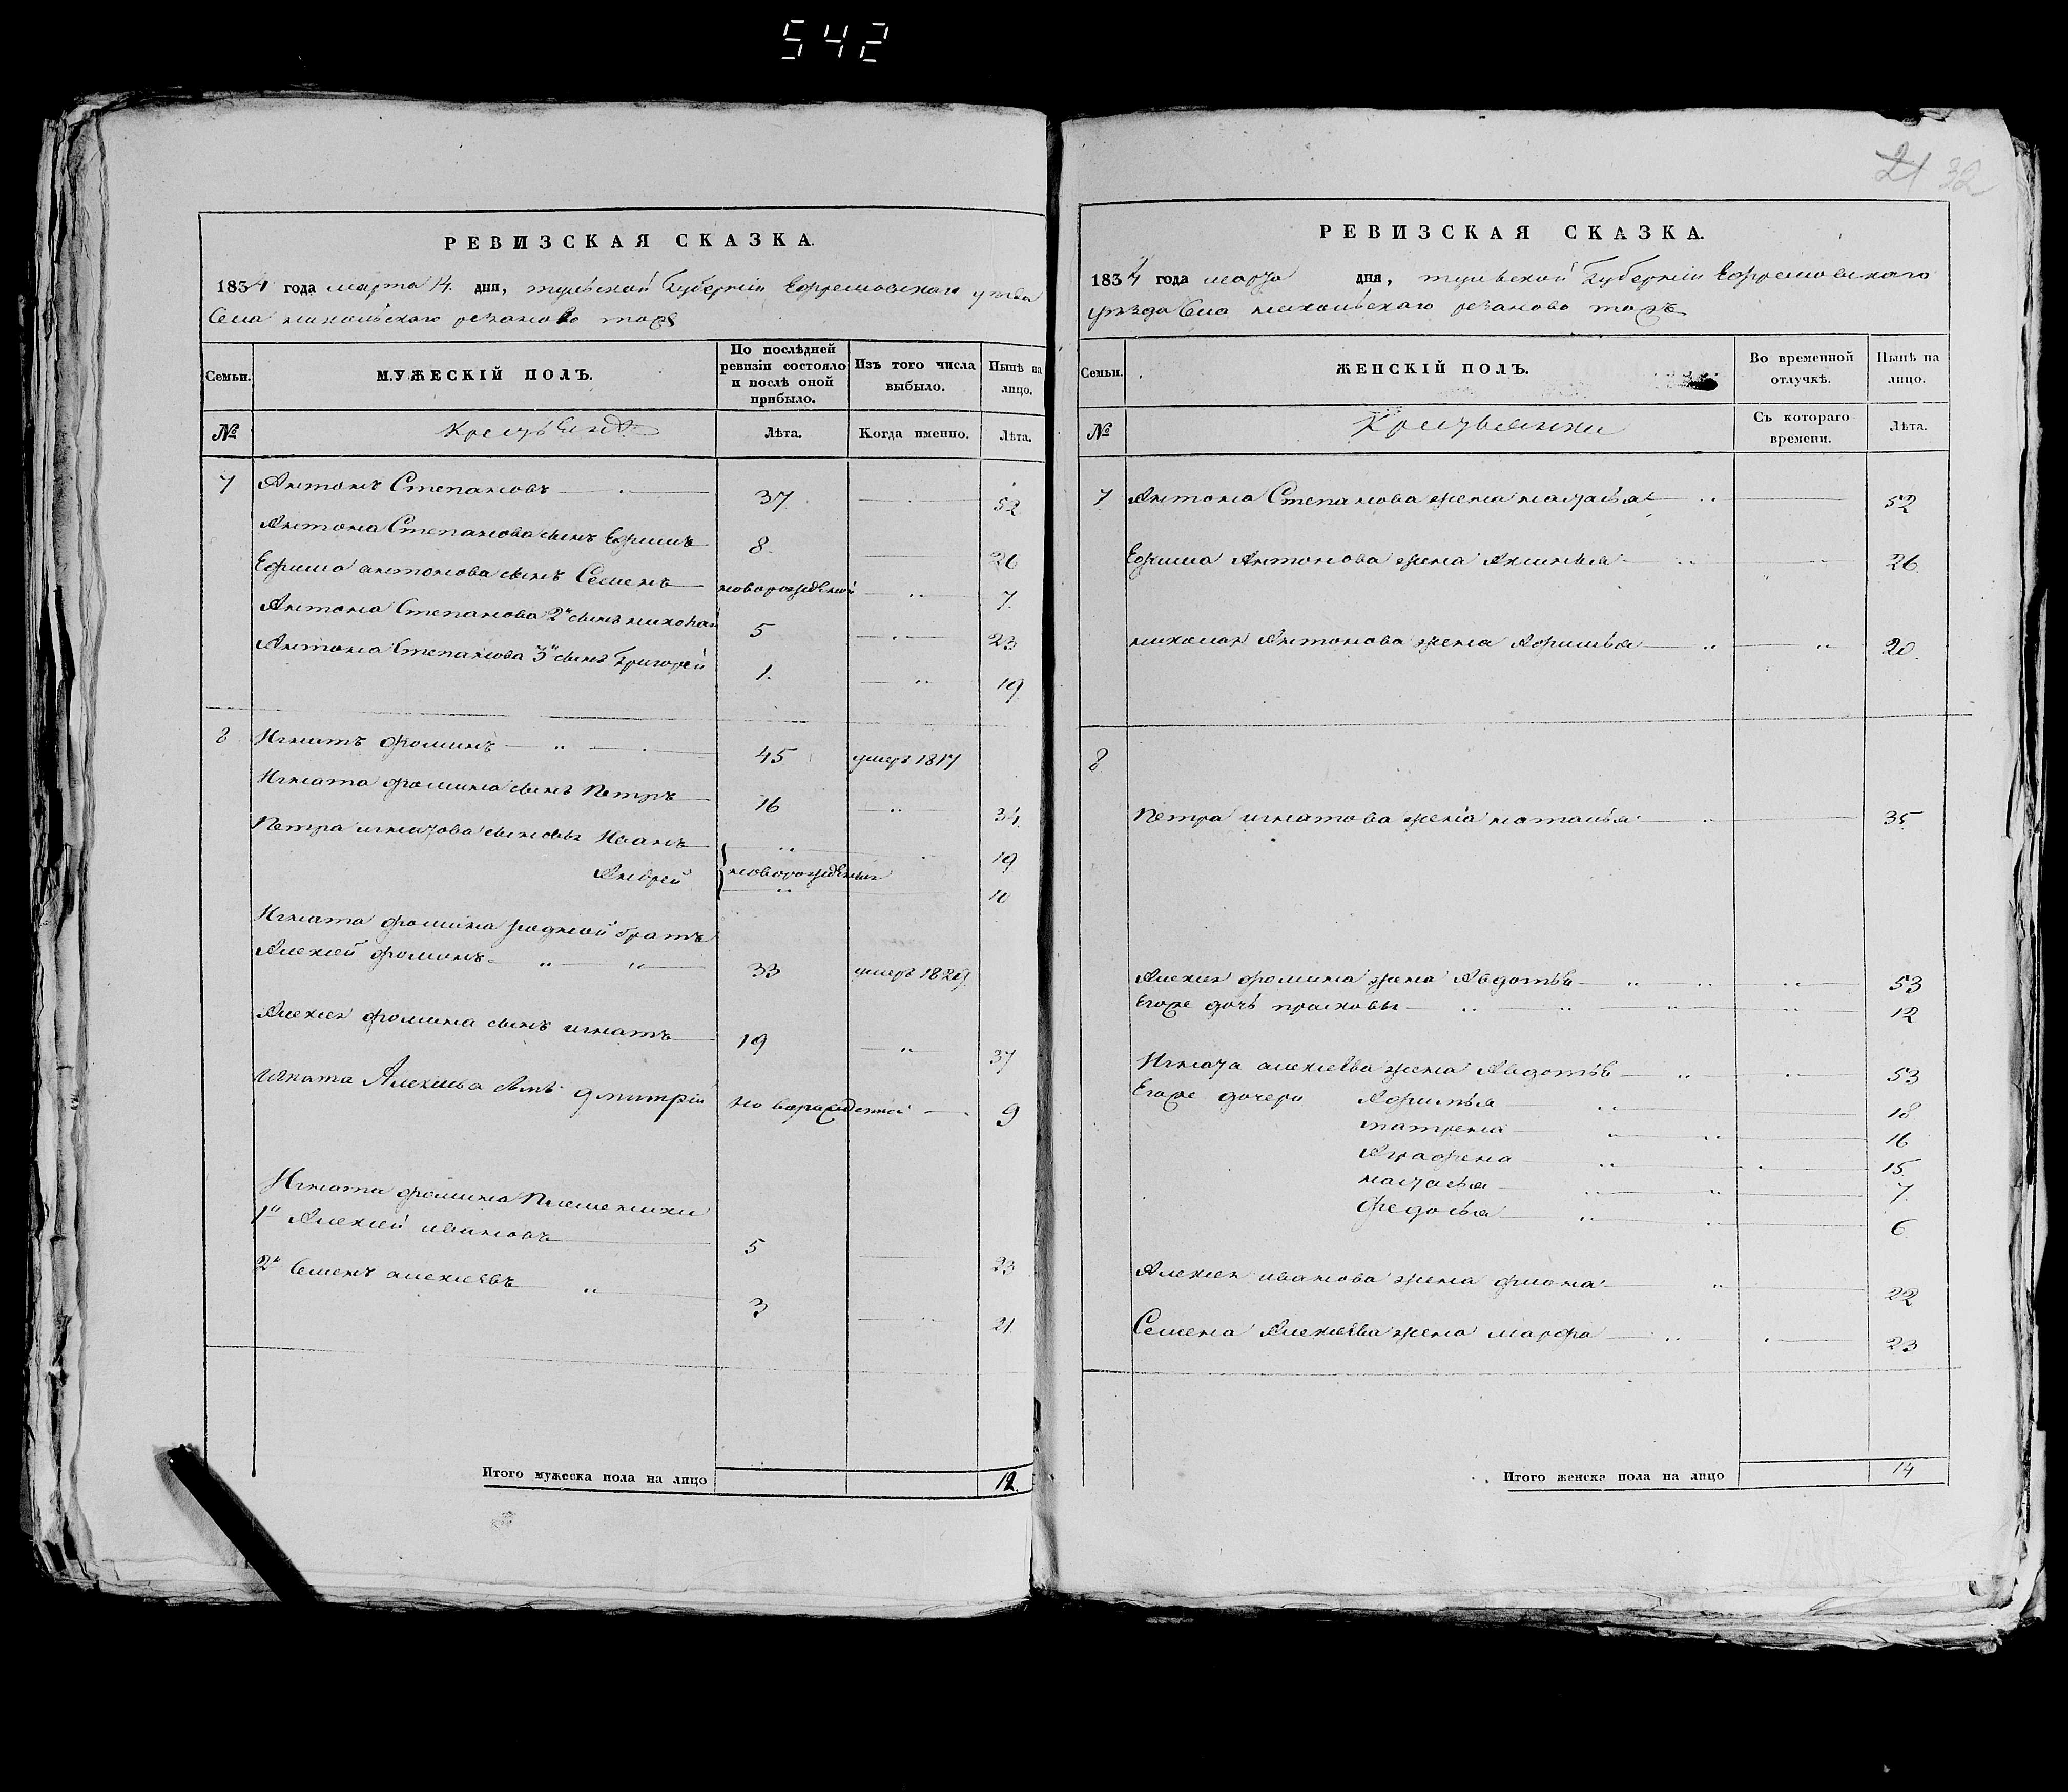 542
РЕВИЗСКАЯ СКАЗКА.
1834 года марта 14. дня, тульской Губерніи Ефремовскаго уезда
Села никольскаго резаново тожъ
Семьи.
МУЖЕСКІЙ ПОЛЪ.
По послѣдней ревизіи состояло и послѣ оной прибыло.
Изъ того числа выбыло.
Нынѣ на лицо.
№
Крестьяне
Лѣта.
Когда именно.
Лѣта.
7 Антонъ Степановъ 37. 52
Антона Степанова сынъ Ефимъ 8. 26
Ефима антонова сынъ Семенъ новорожденой 7.
Антона Степанова 2й сынъ николай 5 23
Антона Степанова 3й сынъ Григорей 1. 19
8 Игнатъ фоминъ 45 умеръ 1817
Игната фомина сынъ Петръ 16 34
Петра игнатова сыновья Иванъ 19
Андрей новорожденыя 10
Игната фомина родной братъ
Алексей фоминъ 33 умеръ 1829
Алексея фомина сынъ игнатъ 19 37
игната Алексеева сынъ дмитрій новорожденной 9
Игната фомина Племеники
1й Алексей ивановъ 5 23
2й Семенъ алексеевъ 3 21.
Итого мужеска пола на лицо 12.
21 32
РЕВИЗСКАЯ СКАЗКА.
1834 года марта дня, тульской Губерніи Ефремовскаго
уезда Села никольскаго резаново тожъ
Семьи.
ЖЕНСКІЙ ПОЛЪ.
Во временной отлучкѣ.
Нынѣ на лицо.
№
Крестьянки
Съ котораго времени.
Лѣта.
7 Антона Степанова жена насталья 52
Ефима Антонова жена Аксинья 26
николая Антонова жена Афимья 20.
8.
Петра игнатова жена наталья 35
Алексея фомина жена Авдотья 53
Егоже дочь прасковья 12
Игната алексеева жена Авдотья 53
Егоже дочери Афимья 18
матрена 16
Аграфена 15.
настасья 7.
Федосья 6
Алексея иванова жена фиона 22
Семена Алексеева жена марфа 23
Итого женска пола на лицо 14